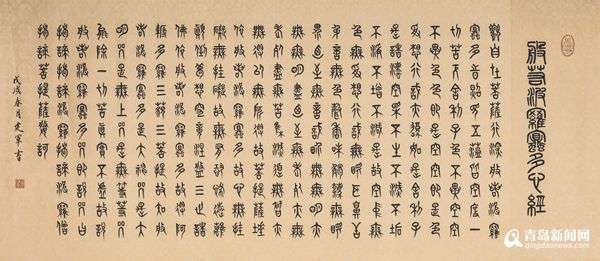 般若波羅蜜多心經
觀自在菩薩行深般若波羅
蜜多時照見五蘊皆空度一
切苦厄舍利子色不異空空
不異色色即是空空即是色
受想行識亦復如是舍利子
是諸法空相不生不滅不垢
不淨不增不減是故空中無
色無受想行識無眼耳鼻舌
身意無色聲香味觸法無眼
界乃至無意識界無無明亦
無無明盡乃至無老死亦無
老死盡無苦集滅道無智亦
無得以無所得故菩提薩埵
依般若波羅蜜多故心無罣
礙無罣礙故無有恐怖遠離
顛倒夢想究竟涅槃三世諸
佛依般若波羅蜜多故得阿
耨多羅三藐三菩提故知般
若波羅蜜多是大神咒是大
明咒是無上咒是無等等咒
能除一切苦真實不虛故說
般若波羅蜜多咒即說咒曰
揭諦揭諦波羅揭諦波羅僧
揭諦菩提薩婆訶
戊戌春月 書
青岛新闻网
qingdaonews.com